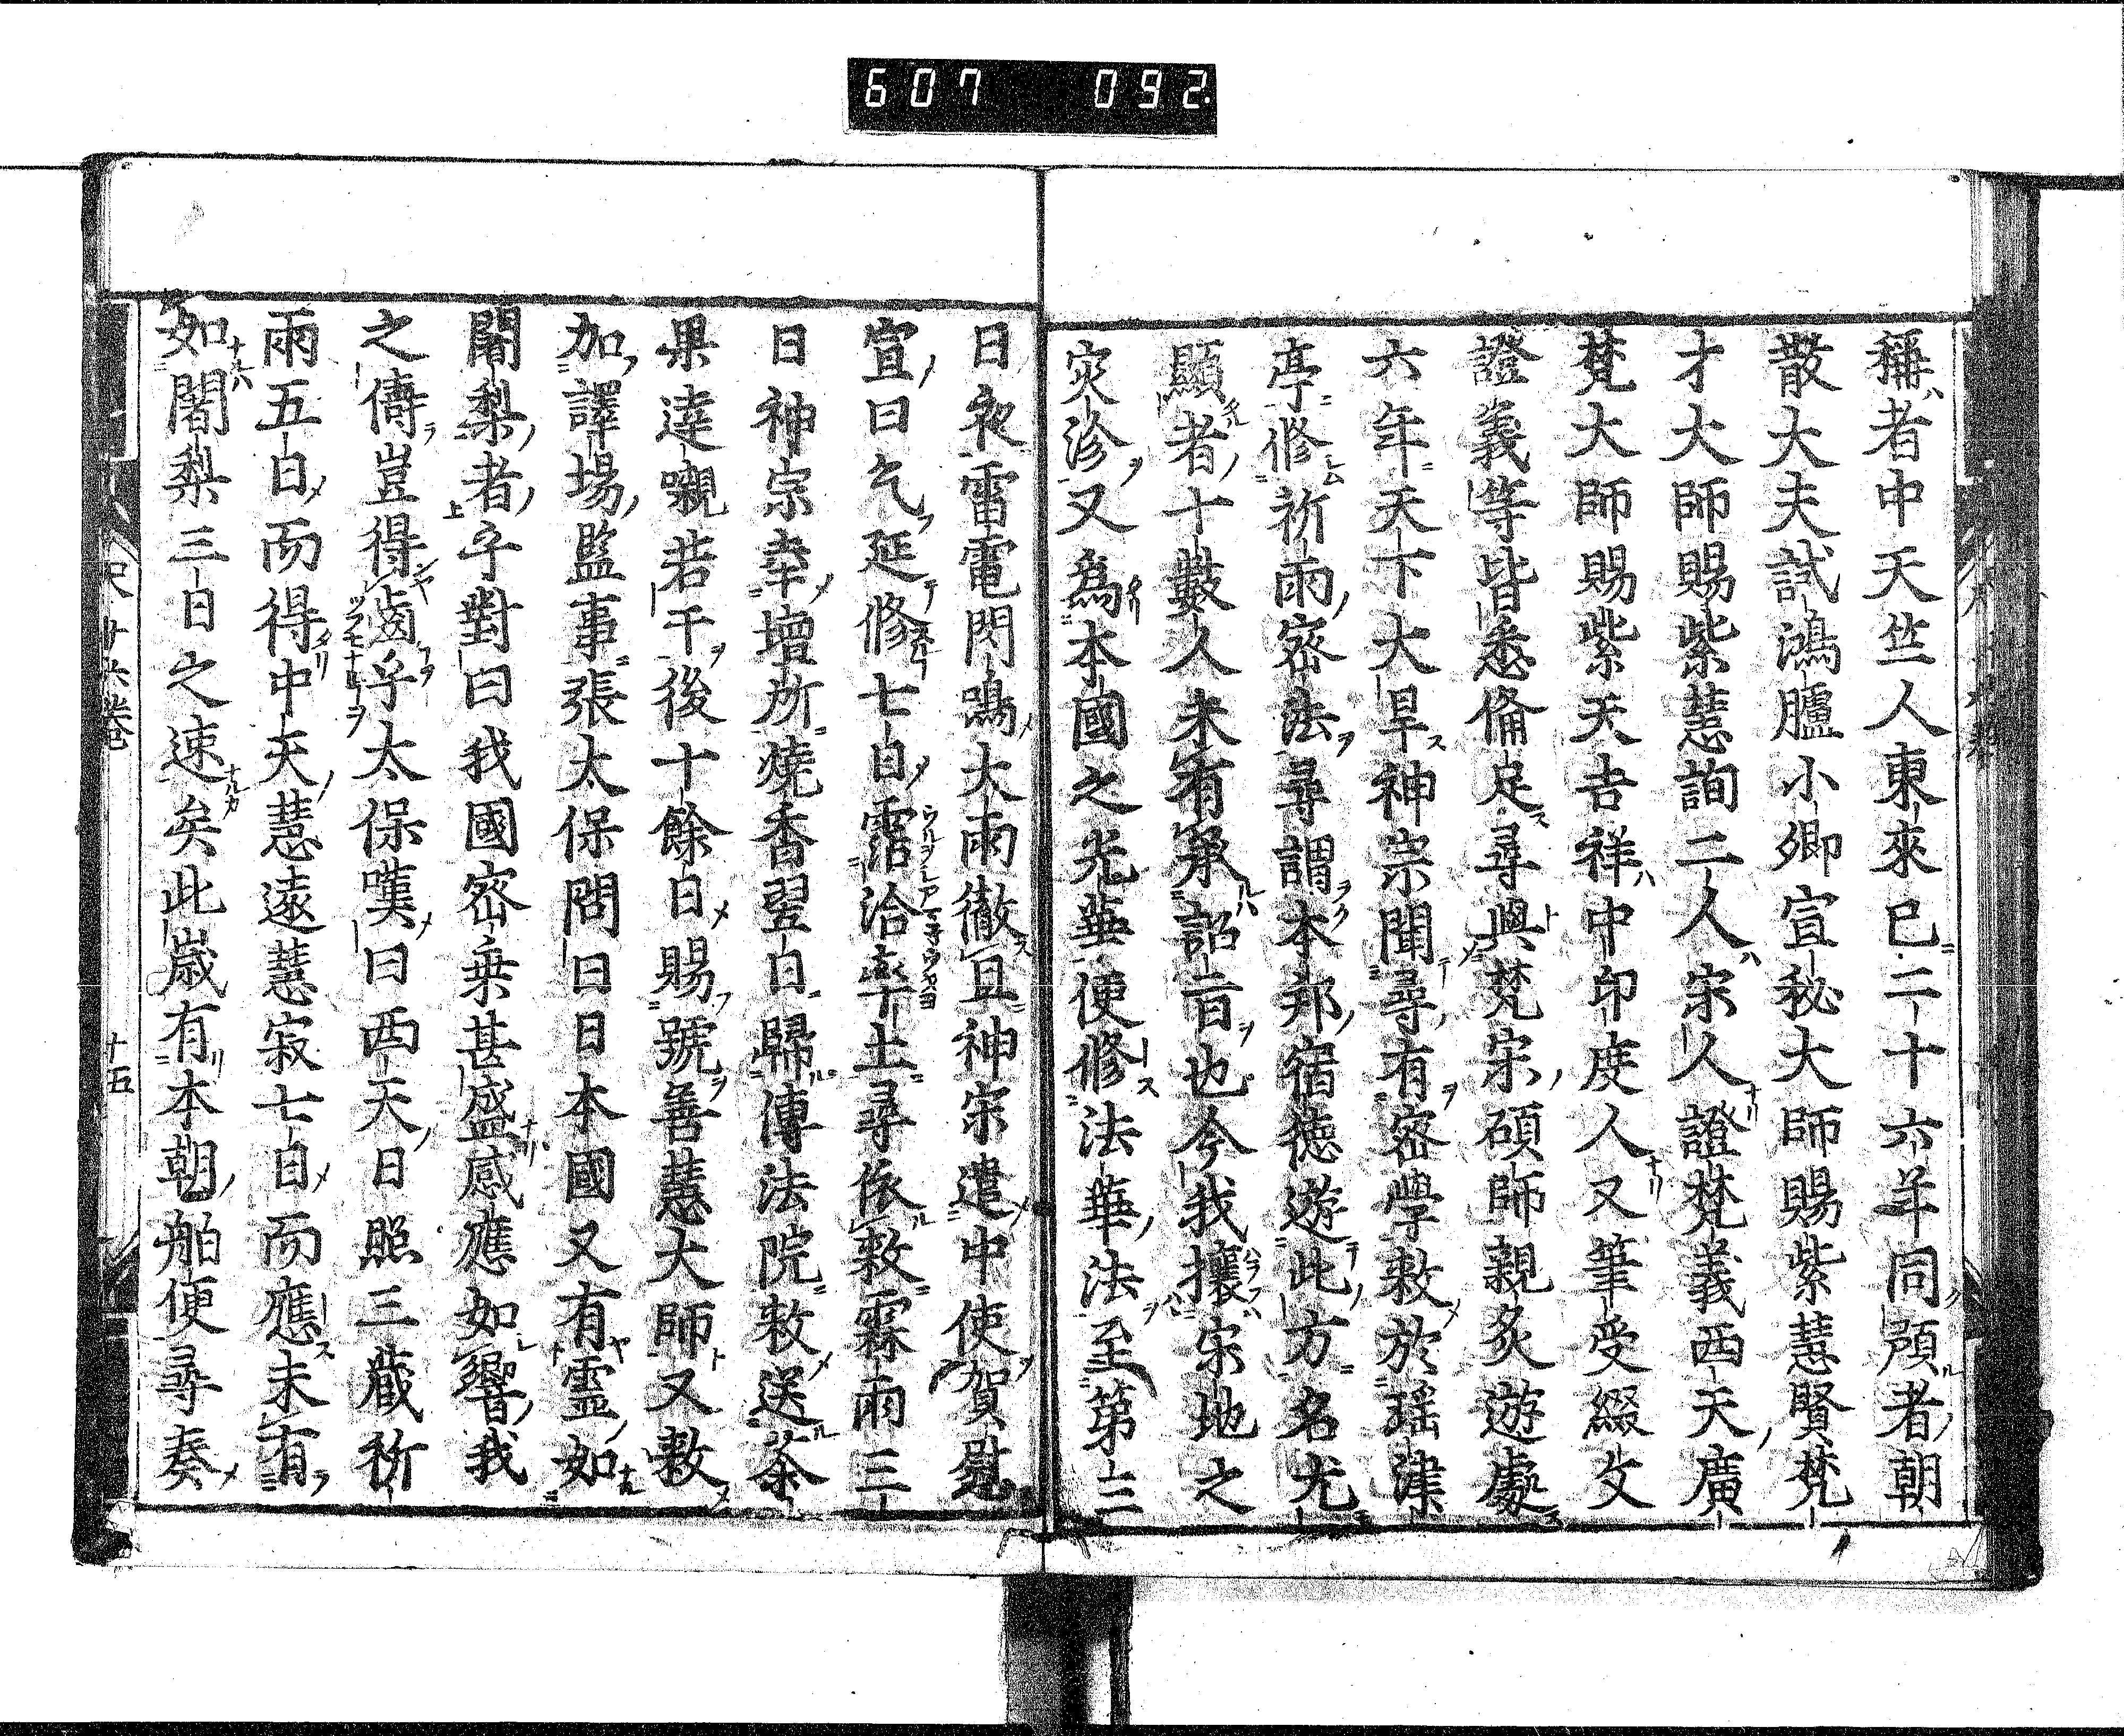 607 092
稱者中天竺人東來已二十六年同預者朝
散大夫試鴻臚小卿宣秘大師賜紫慧賢梵
才大師賜紫慧詢二人宋人證梵義西天廣
梵大師賜紫天吉祥中印度人又筆受綴文
證義等皆悉俻足尋與梵宋碩師親炙遊處
六年天下大旱神宗聞尋有密學敕於瑶津
亭修祈雨密法尋謂本邦宿德遊此方名尤
顯者十數人未有承詔旨也今我攘宋地之
灾沴又為本國之光華便修法華法至第三
日夜雷電閃鳴大雨徹旦神宗遣中使賀慰
宣曰乞延修七日霑洽率土尋依敕霖雨三
日神宗幸壇所燒香翌日歸傳法院敕送茶
果達嚫若干後十餘日賜號善慧大師又敕
加譯場監事張太保問曰日本國又有霊如
闍梨者乎對曰我國密乗甚盛感應如響我
之儔豈得齒乎太保嘆曰西天日照三藏祈
雨五日而得中天慧遠慧寂七日而應未有
如闍梨三日之速矣此歳有本朝舶便尋奏
尺 廿六卷 十五